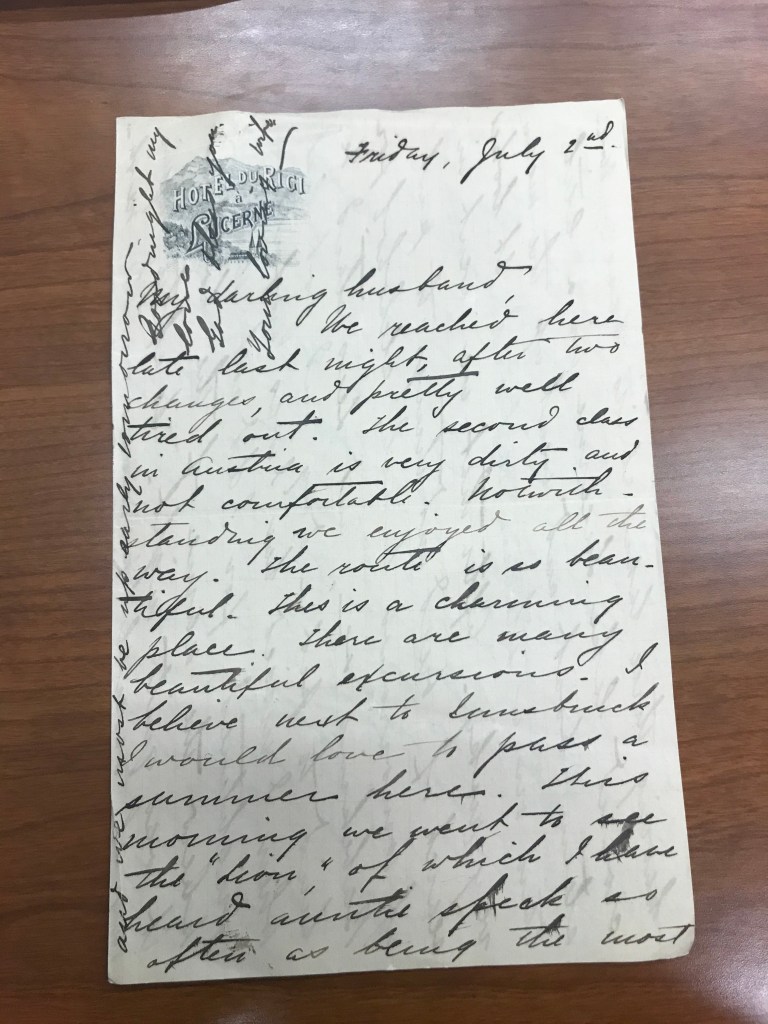 HOTEL DU RIGI
à
LUCERNE
Friday, July 2nd.
My darling husband,
We reached here
late last night, after two
changes, and pretty well
tired out. The second class
in Austria is very dirty and
not comfortable. Notwith-
standing we enjoyed all the
way. The route is so beau-
tiful. This is a charming
place. There are many
beautiful excursions. I
believe next to Innsbruck
I would love to pass a
summer here. This
morning we went to see
the "Lion," of which I have
heard auntie speak so
often as being the most
and we must be up early tomorrow
Goodnight my
love
you
Your loving wife